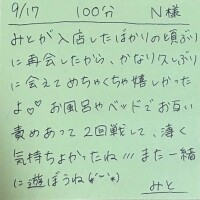 9/17 100分 N様
みとが入店したばかりの頃ぶり
に再会したから、かなり久しぶり
に会えてめちゃくちゃ嬉しかった
よ♡♡ お風呂やベッドでお互い
責めあって2回戦して、凄く
気持ちよかったね!!! また一緒
に遊ぼうね(*ˊᵕˋ*)
みと